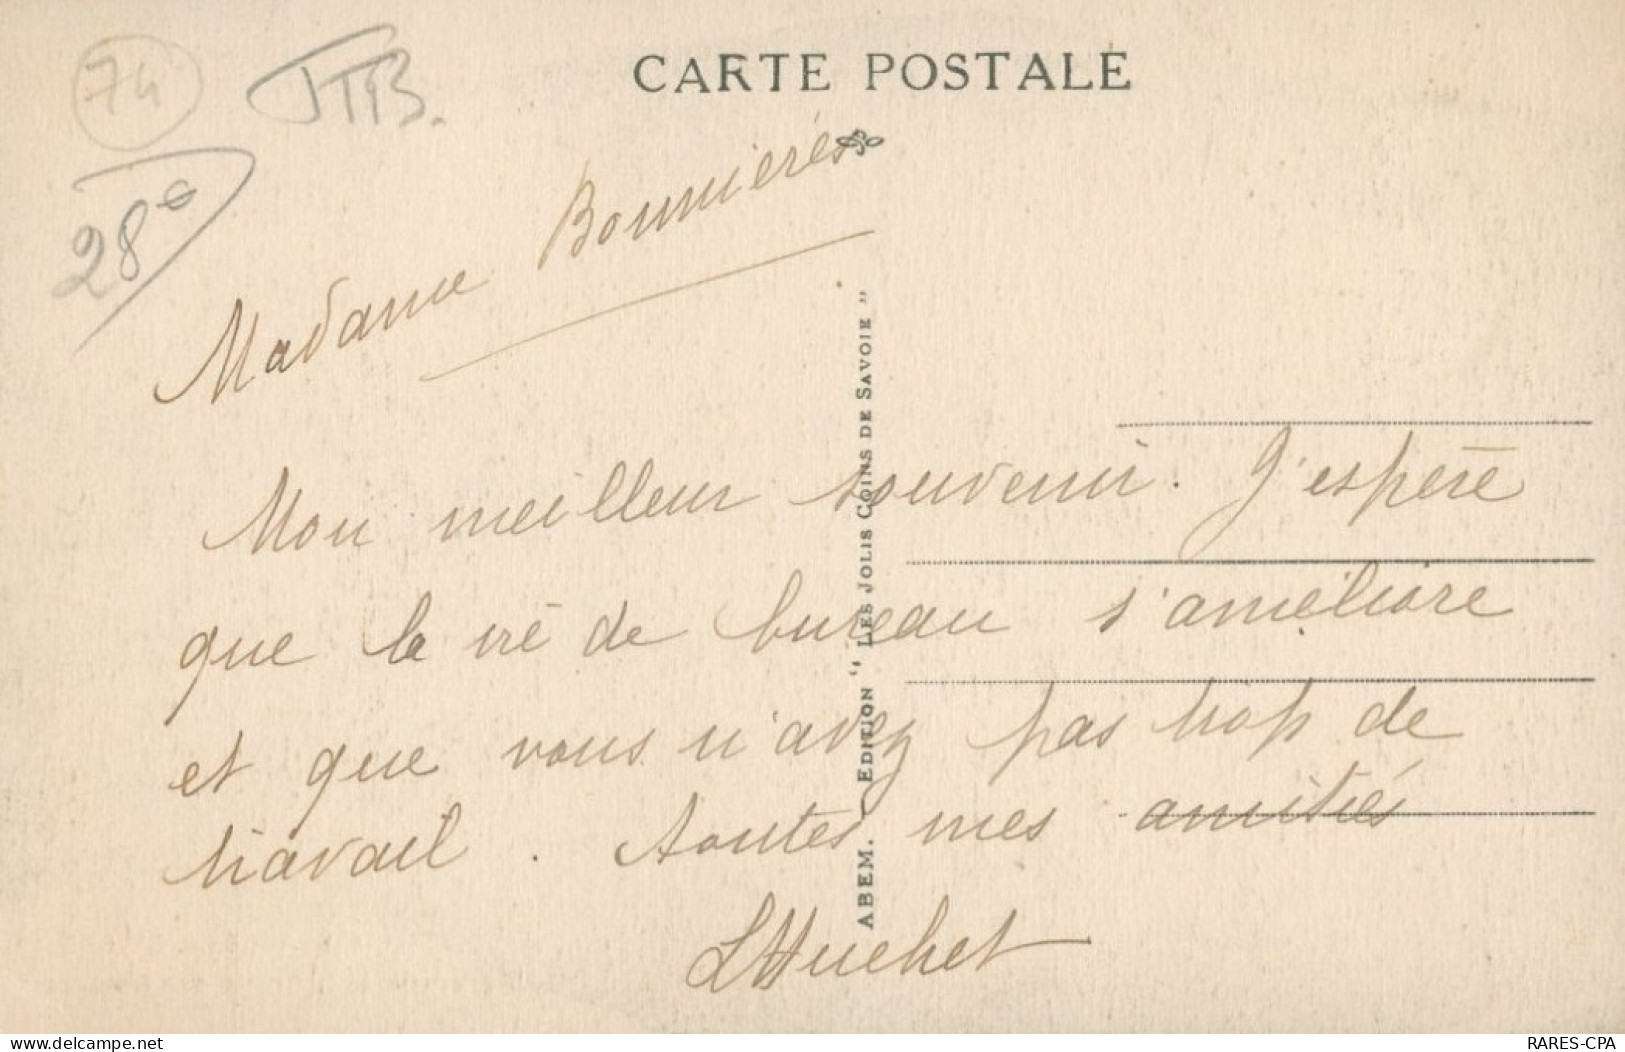 CARTE POSTALE
74
TTB.
28€
Madame Bonnierés
Mon meilleur souvenir. J'espère
que la vie de bureau s'améliore
et que vous n'avez pas trop de
travail. Toutes mes amitiés
LHuchet
ABEM. EDITION "LES JOLIS COINS DE SAVOIE"
delcampe.net
RARES-CPA